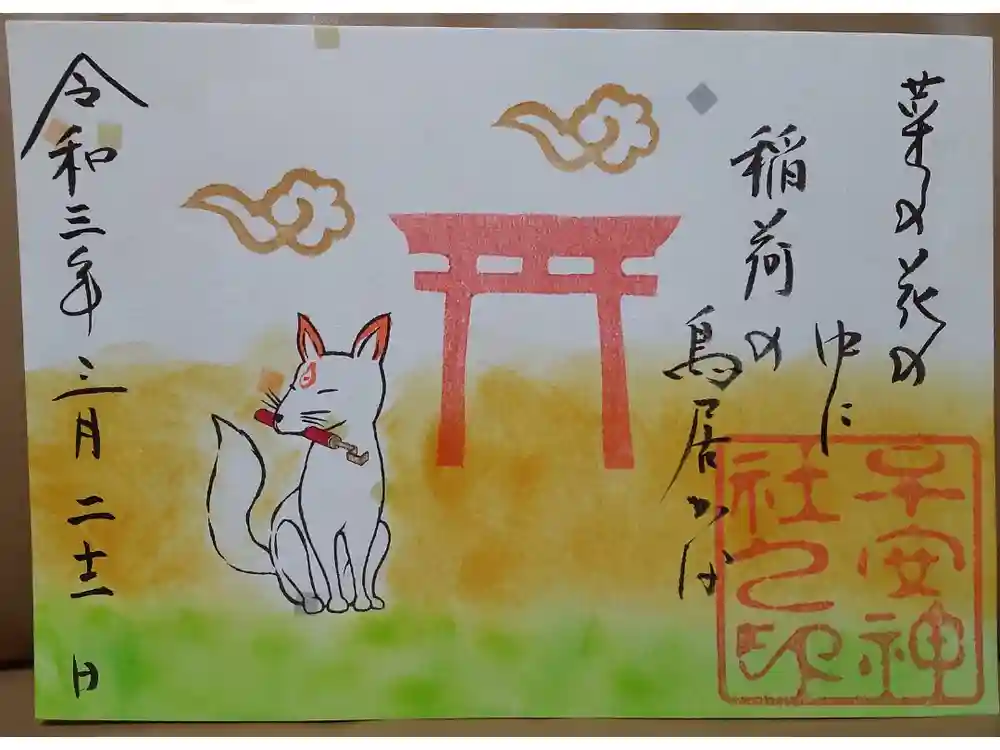 菜の花の
中に
稲荷の
鳥居かな
令和三年三月二十二日
子安神
社之印